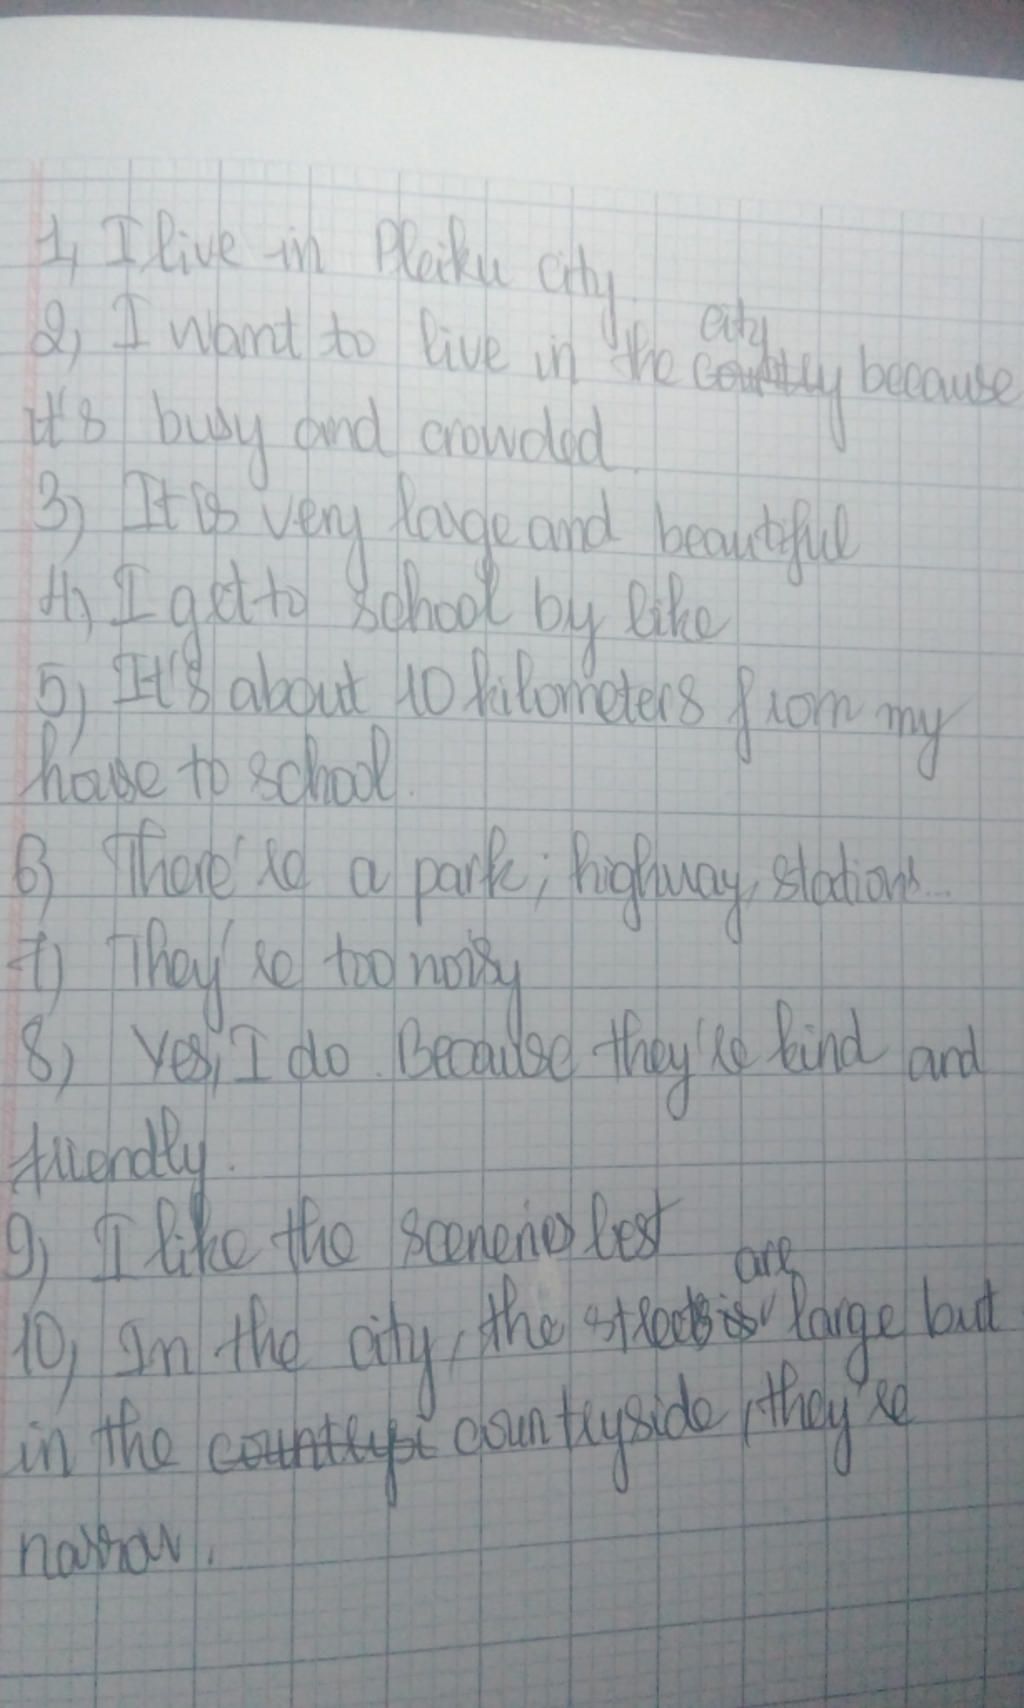 1, I live in Pleiku city.
2, I want to live in the city because
it's busy and crowded.
3) It is very large and beautiful
4) I get to school by bike
5) It's about 10 kilometers from my
house to school.
6) There're a park, highway, stations...
7) They're too noisy
8) Yes, I do. Because they're kind and
friendly.
9) I like the sceneries best
10) In the city, the streets are large but
in the countryside, they're
narrow.